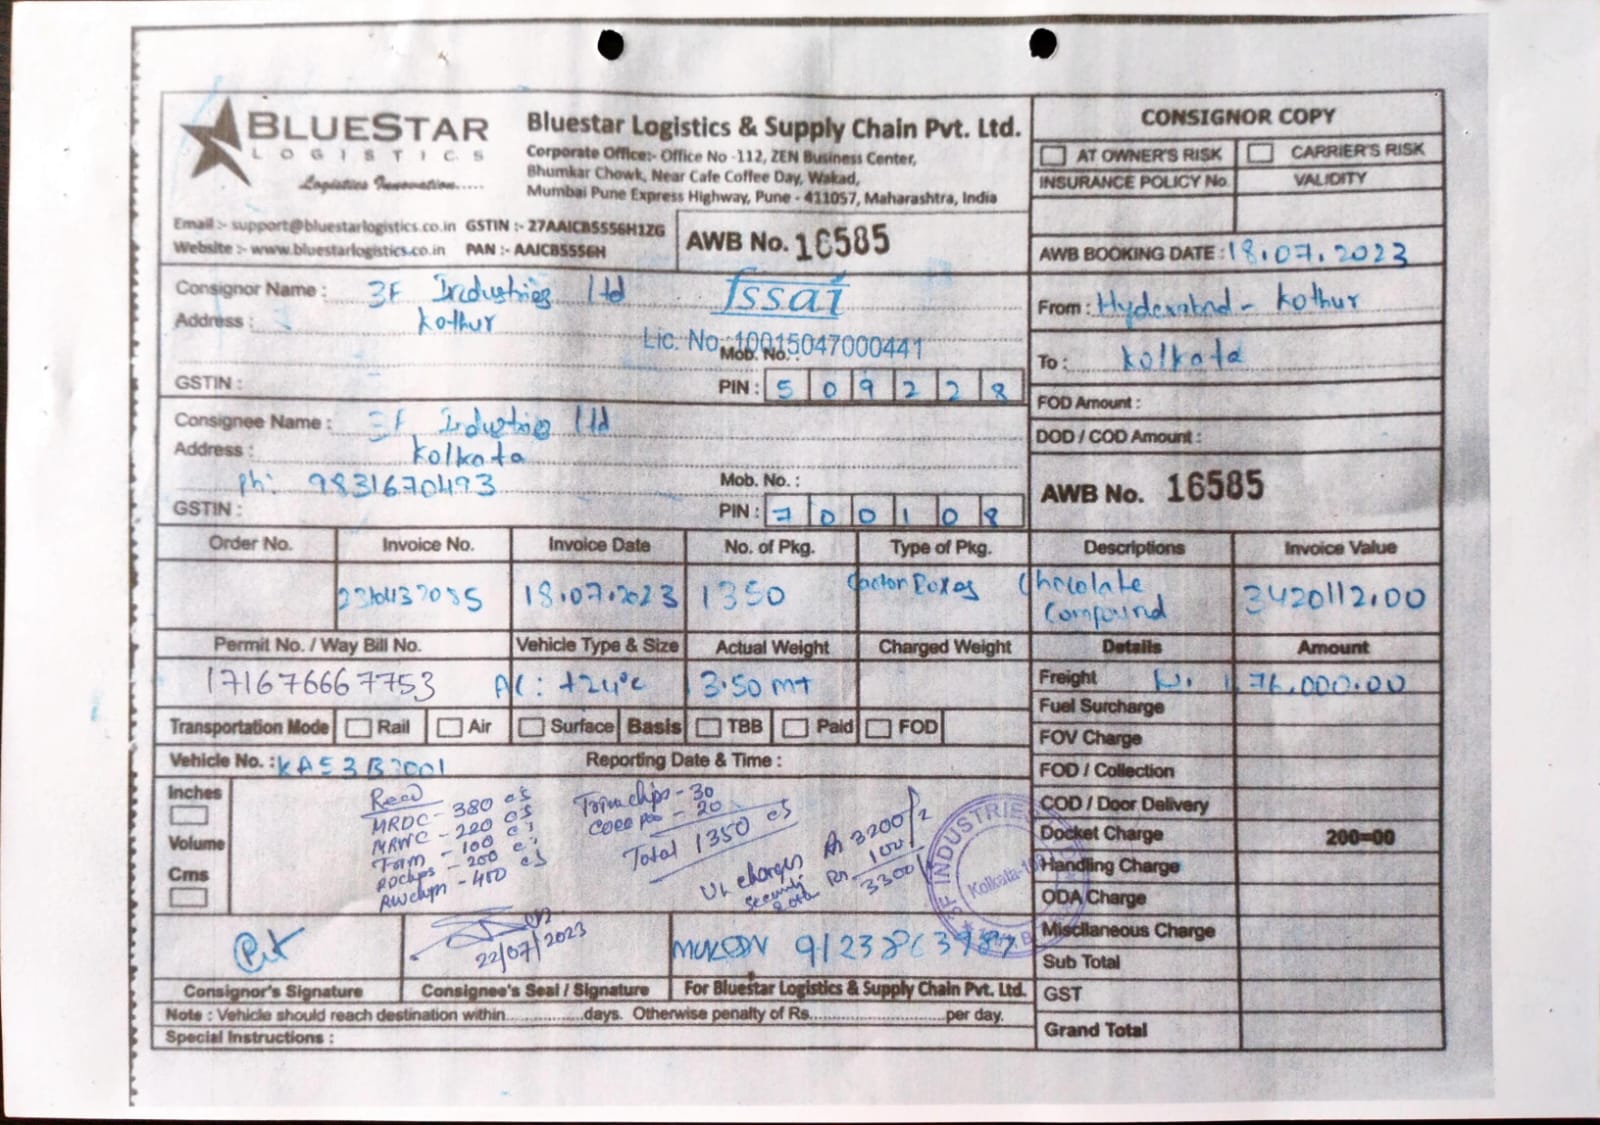 BLUESTAR
LOGISTICS
Logistics Innovation.....
Bluestar Logistics & Supply Chain Pvt. Ltd.
Corporate Office:- Office No -112, ZEN Business Center,
Bhumkar Chowk, Near Cafe Coffee Day, Wakad,
Mumbai Pune Express Highway, Pune - 411057, Maharashtra, India
CONSIGNOR COPY
AT OWNER'S RISK CARRIER'S RISK
INSURANCE POLICY No. VALIDITY
Email :- support@bluestarlogistics.co.in GSTIN :- 27AAICB5556H1ZG
Website :- www.bluestarlogistics.co.in PAN :- AAICB5556H
AWB No. 16585
AWB BOOKING DATE : 18.07.2023
Consignor Name : 3F Industries ltd
fssai
Address : Kothur
Lic. No. 10015047000441
Mob. No. :
GSTIN : PIN : 509228
From : Hyderabad - Kothur
To : Kolkata
FOD Amount :
DOD / COD Amount :
Consignee Name : 3F Industries ltd
Address : Kolkata
Ph: 9831670493 Mob. No. :
GSTIN : PIN : 700108
AWB No. 16585
Order No. Invoice No. Invoice Date No. of Pkg. Type of Pkg. Descriptions Invoice Value
18.07.2023 1350 Chocolate Compound 3420112.00
Permit No. / Way Bill No. Vehicle Type & Size Actual Weight Charged Weight Details Amount
171676667753 AC: +24°c 13.50 MT
Freight 76,000.00
Fuel Surcharge
Transportation Mode Rail Air Surface Basis TBB Paid FOD
FOV Charge
Vehicle No. : KA53B7001 Reporting Date & Time :
FOD / Collection
COD / Door Delivery
Docket Charge 200=00
Handling Charge
ODA Charge
Miscllaneous Charge
Sub Total
GST
Grand Total
Inches
Volume
Cms
Recd
MRDC - 380 cs
MRWC - 220 cs
- 100
- 200 cs
- 400
- 30
- 20
Total 1350 cs
UL charges 3200/-
Security 100/-
3300/-
3F INDUSTRIES
Kolkata-
22/07/2023
Consignor's Signature Consignee's Seal / Signature For Bluestar Logistics & Supply Chain Pvt. Ltd.
Note : Vehicle should reach destination within...............days. Otherwise penalty of Rs.........................per day.
Special Instructions :